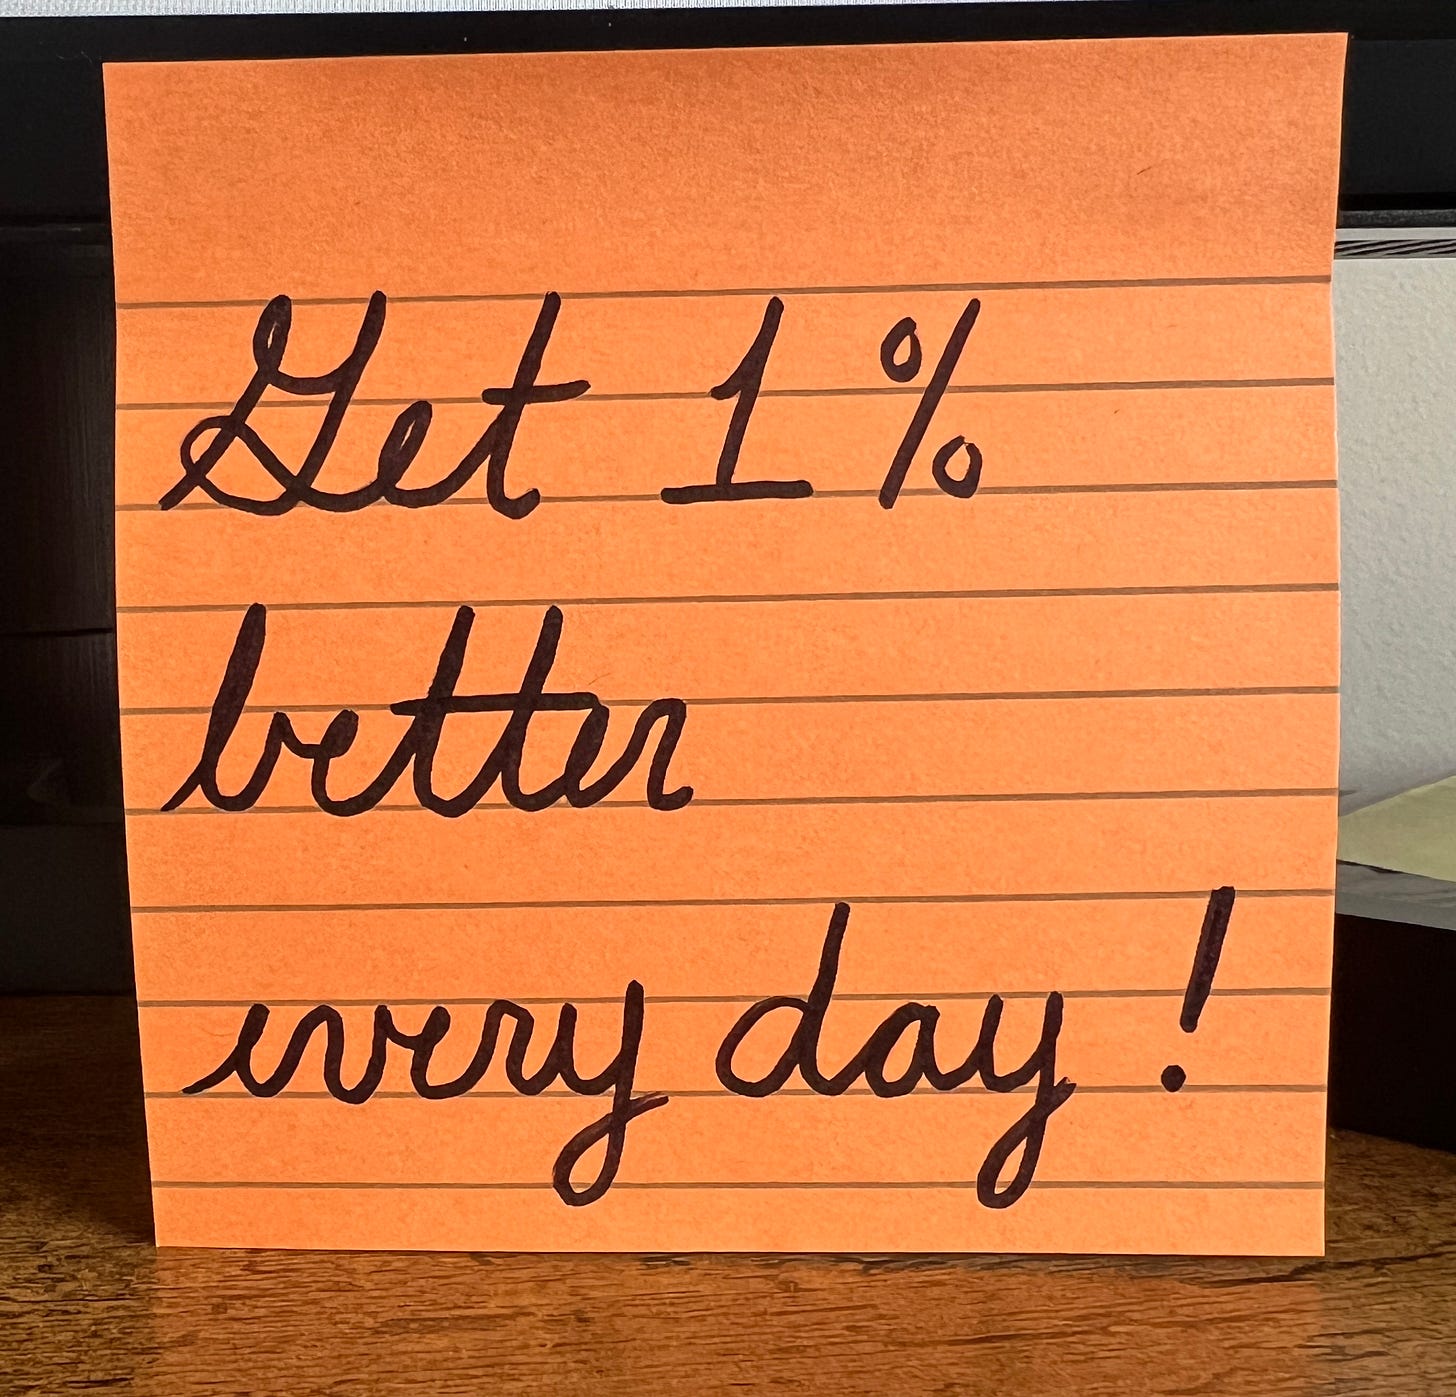 Get 1%
better
every day!